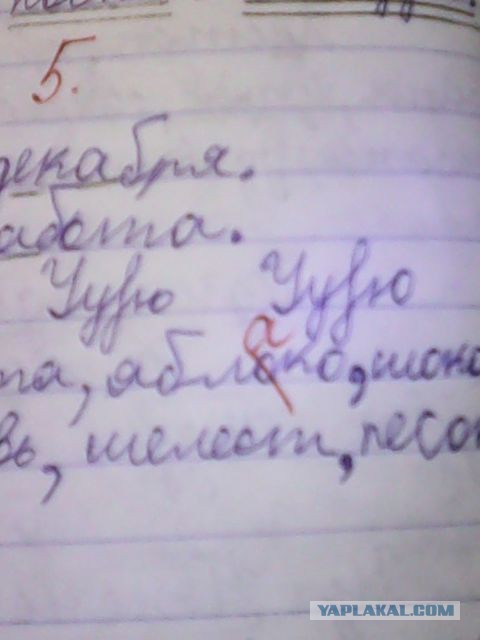 5.
декабря.
абота.
Ууую Ууую
та, яблоко, шоко
вь, шелест, песок
а
YAPLAKAL.COM